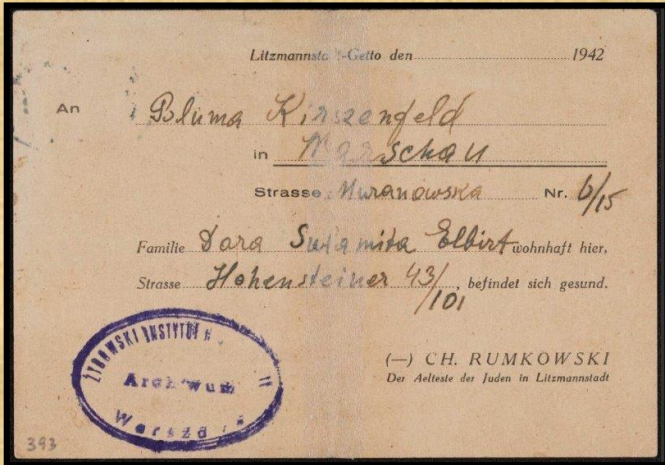 Litzmannstadt-Getto den 1942
An Bluma Kirszenfeld
in Warschau
Strasse Muranowska Nr. 6/15
Familie Dora Sulamita Elbirt wohnhaft hier,
Strasse Hohensteiner 43/101, befindet sich gesund.
(—) CH. RUMKOWSKI
Der Aelteste der Juden in Litzmannstadt
ŻYDOWSKI INSTYTUT
Archiwum
Warszawa
393